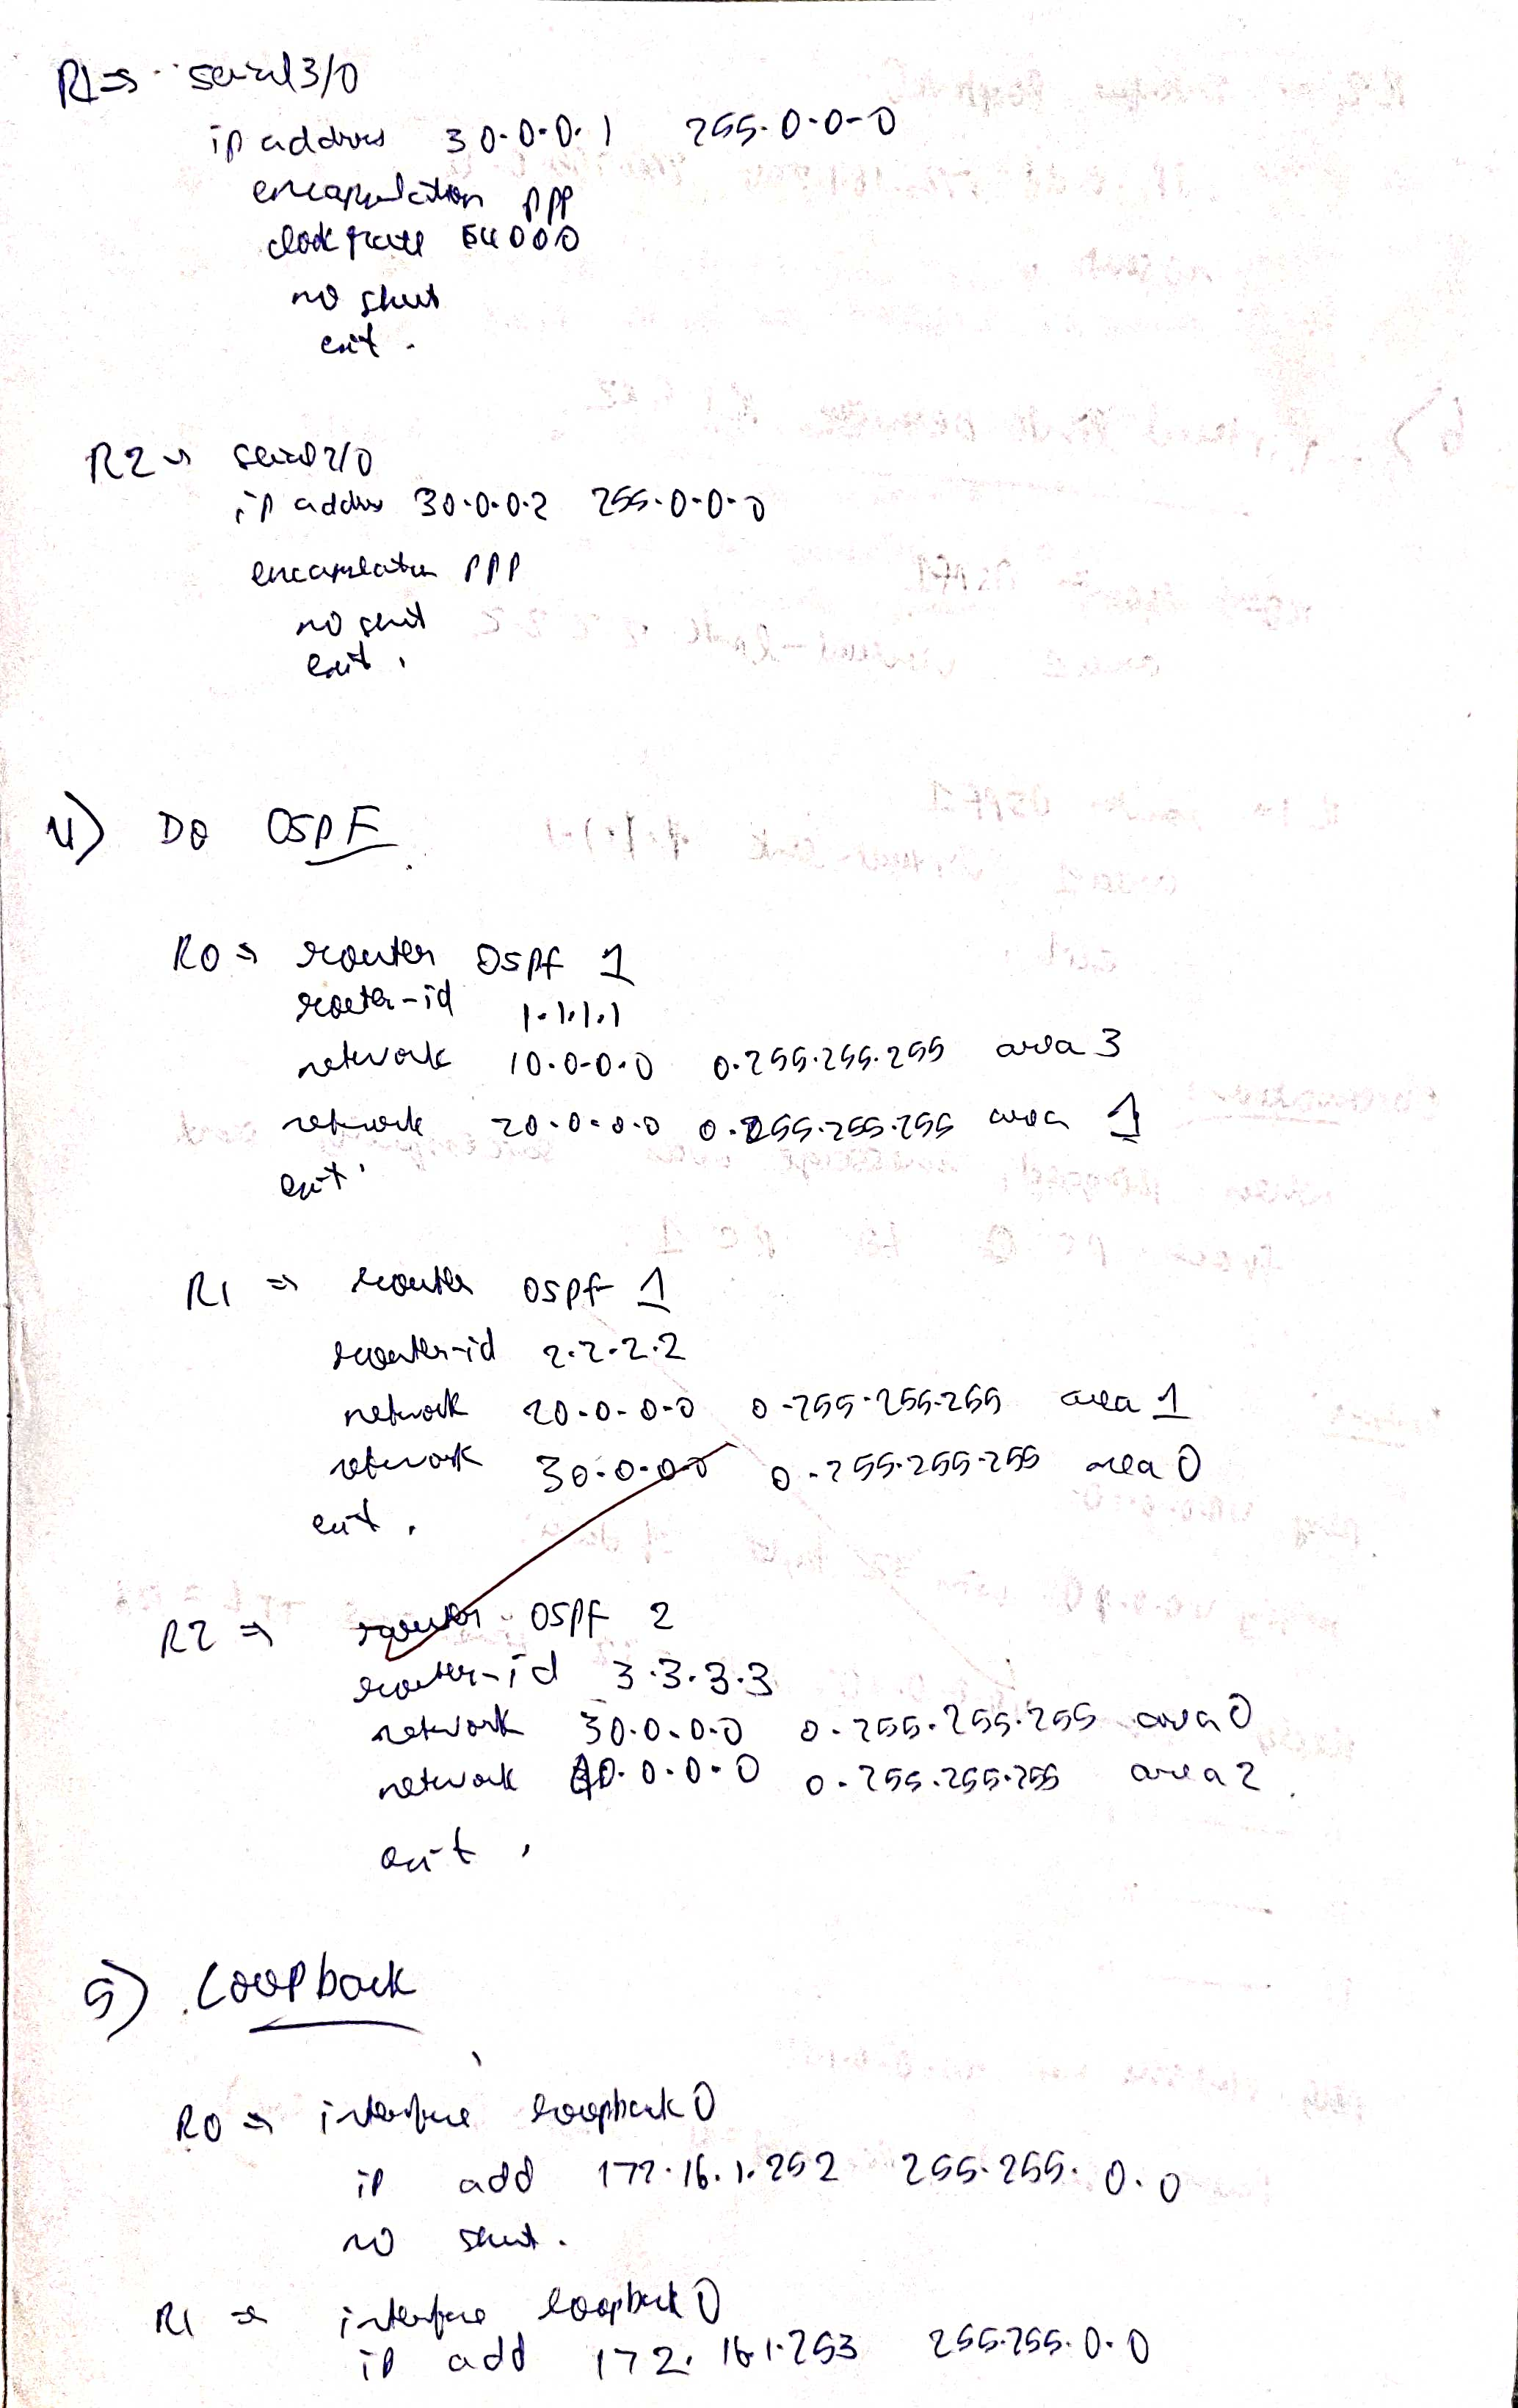 R1⇒ serial 3/0
ip address 30.0.0.1 255.0.0.0
encapsulation ppp
clock rate 64000
no shut
exit.
R2⇒ serial 2/0
ip address 30.0.0.2 255.0.0.0
encapsulation ppp
no shut
exit.
4) DO OSPF
R0⇒ router ospf 1
router-id 1.1.1.1
network 10.0.0.0 0.255.255.255 area 3
network 20.0.0.0 0.255.255.255 area 1
exit.
R1⇒ router ospf 1
router-id 2.2.2.2
network 20.0.0.0 0.255.255.255 area 1
network 30.0.0.0 0.255.255.255 area 0
exit.
R2⇒ router ospf 2
router-id 3.3.3.3
network 30.0.0.0 0.255.255.255 area 0
network 0.255.255.255 area 2.
exit.
5) Loopback
R0⇒ interface loopback 0
ip add 172.16.1.252 255.255.0.0
no shut.
R1⇒ interface loopback 0
ip add 172.16.1.253 255.255.0.0